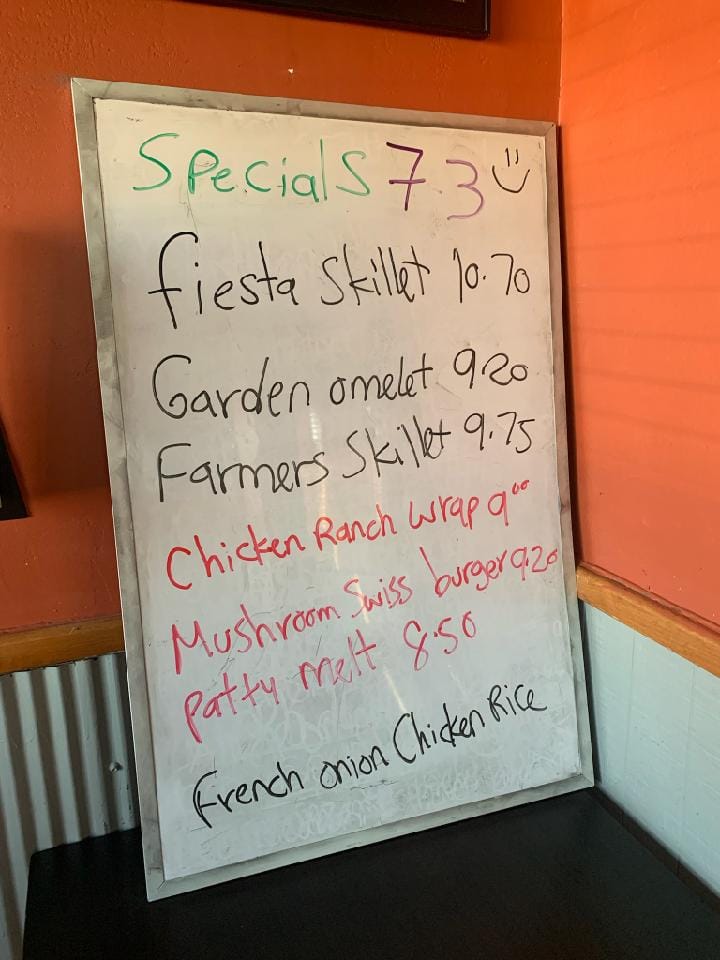 Specials 7.3
fiesta Skillet 10.70
Garden omelet 9.20
Farmers Skillet 9.75
Chicken Ranch Wrap 9⁰⁰
Mushroom Swiss burger 9.20
patty melt 8.50
French onion Chicken Rice